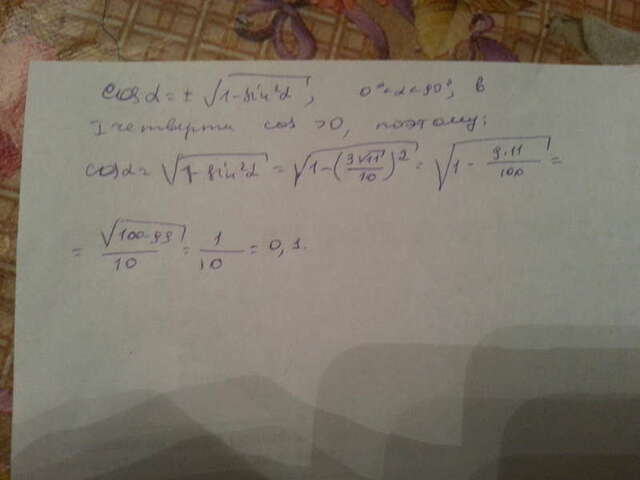 cosα = ± √(1-sin²α), 0°<α<90°, в
I четверти cos >0, поэтому:
cosα = √(1-sin²α) = √(1-(3√11/10)²) = √(1 - 9·11/100) =
= √(100-99)/10 = 1/10 = 0,1.